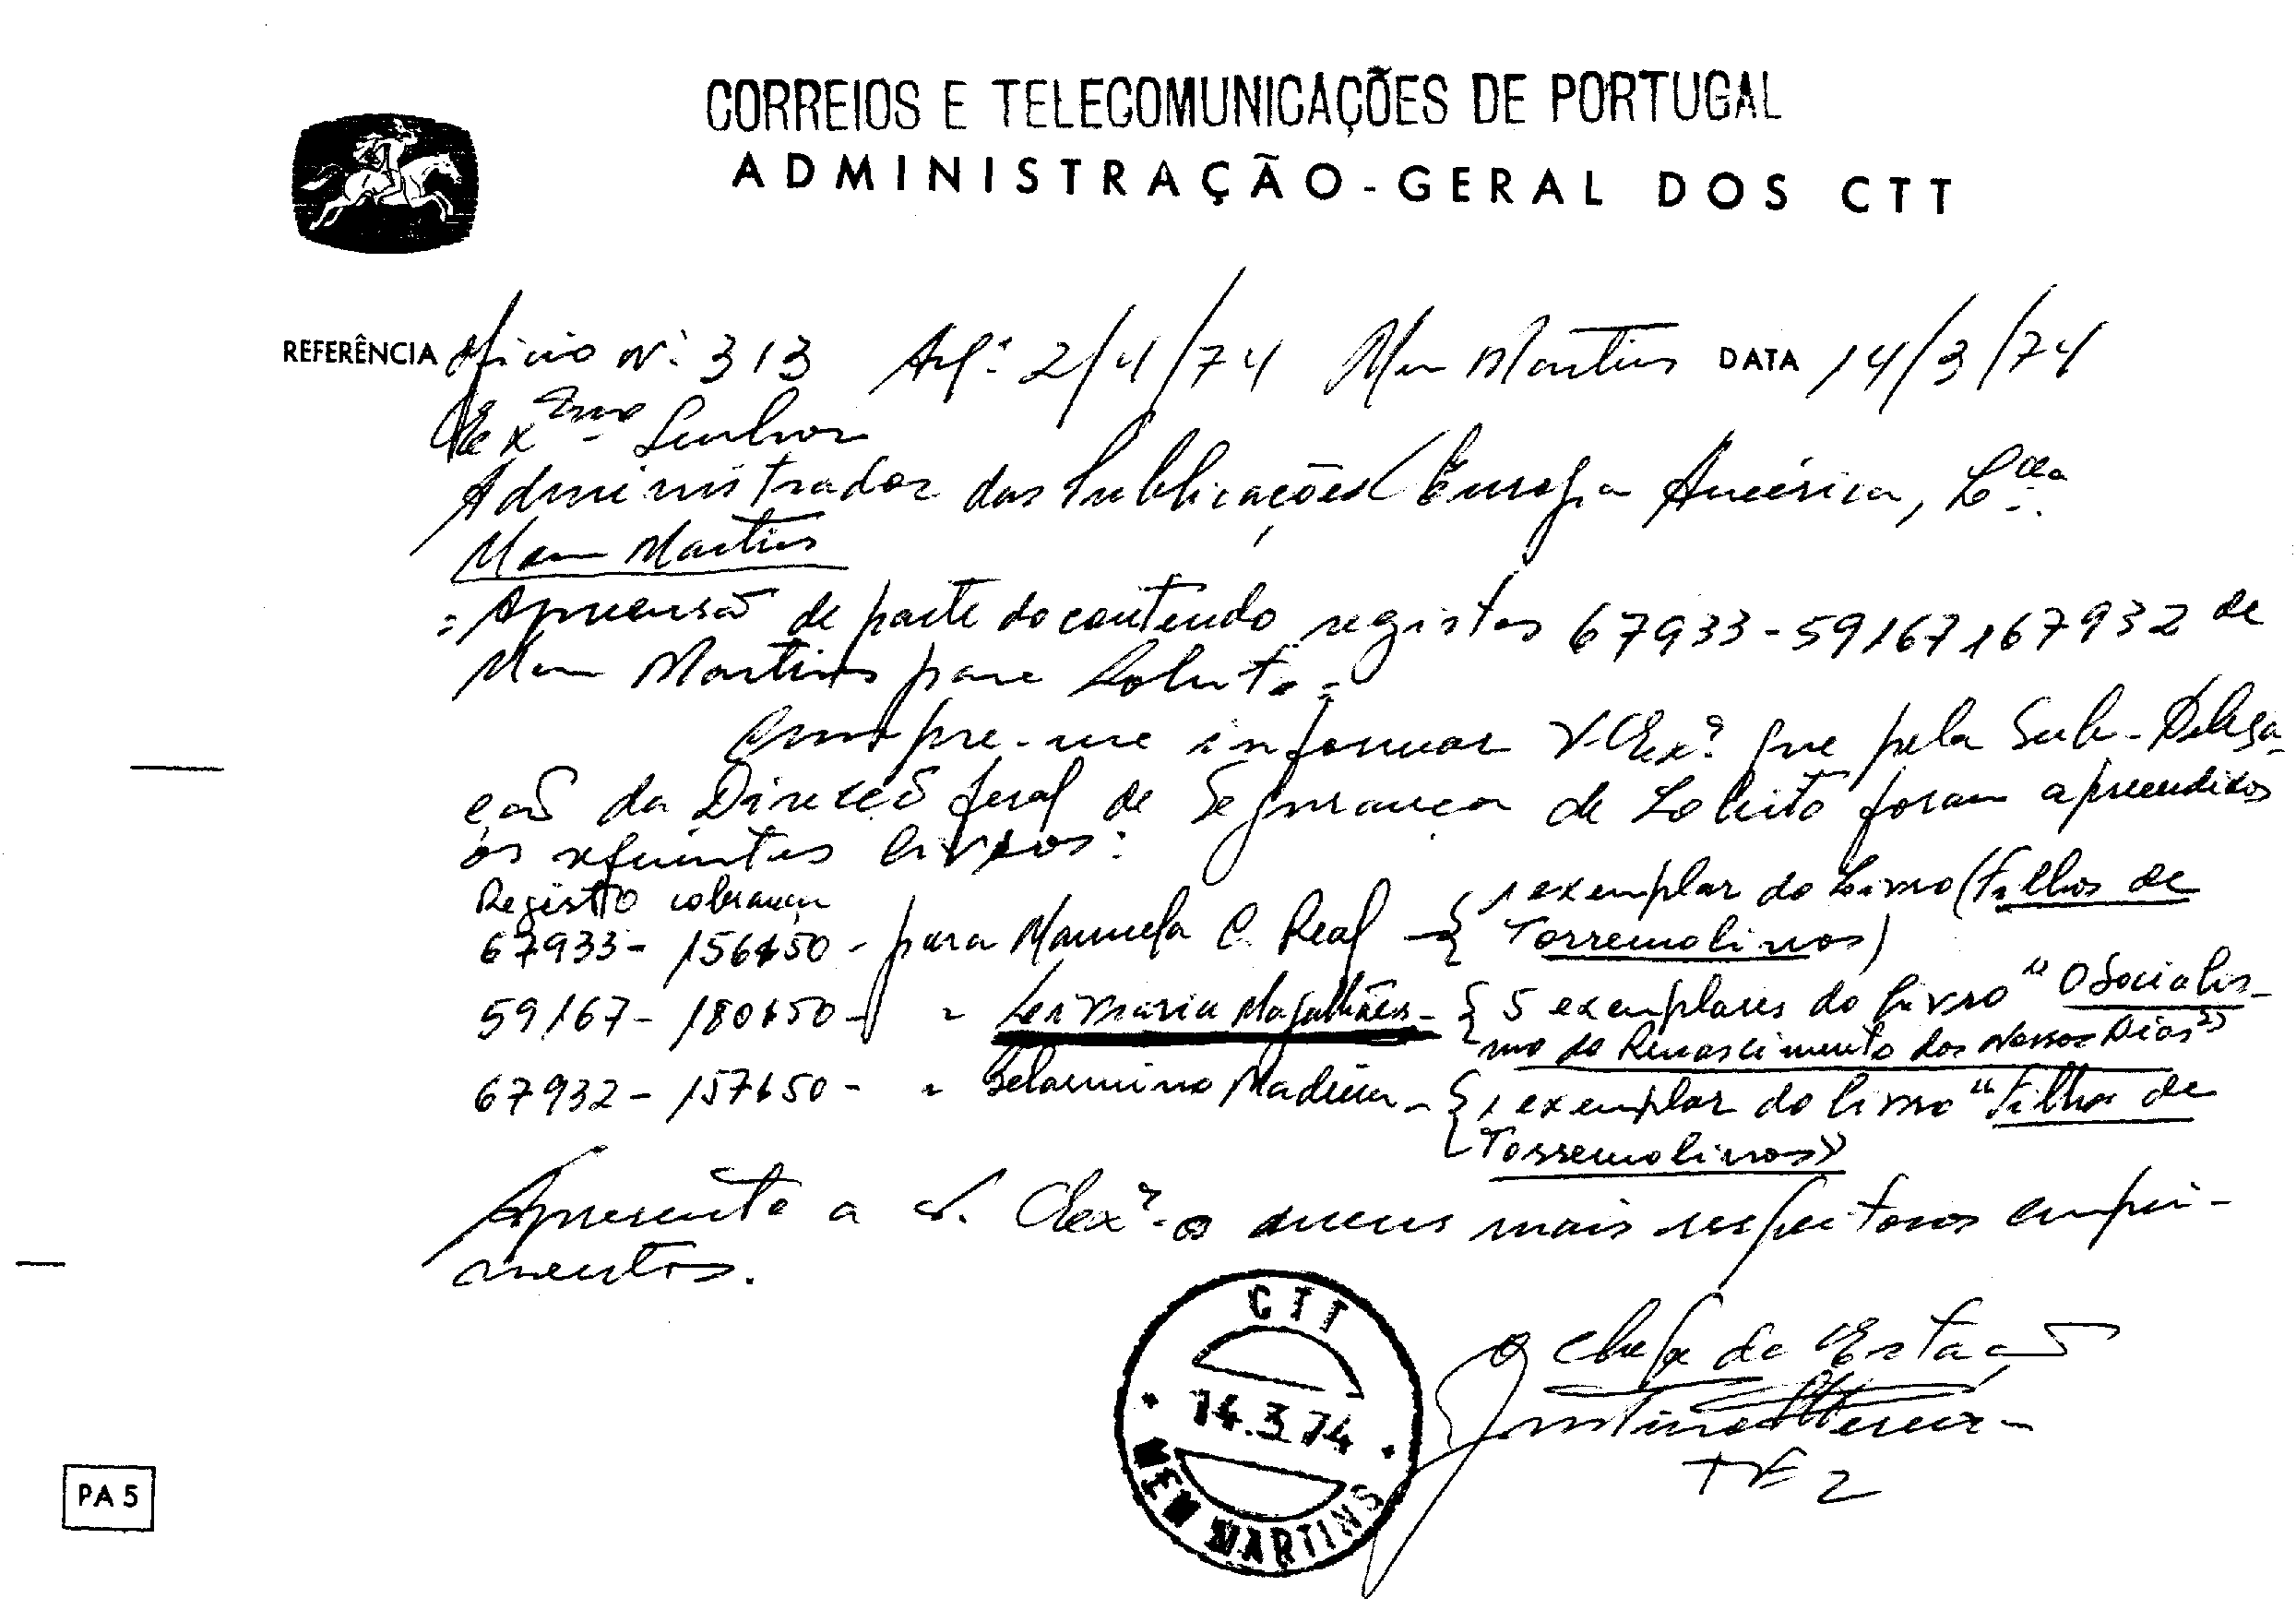 CORREIOS E TELECOMUNICAÇÕES DE PORTUGAL
ADMINISTRAÇÃO-GERAL DOS CTT
REFERÊNCIA Ofício Nº 313 2/4/74 Mem Martins DATA 14/3/74
Exmo Senhor
Administrador das Publicações Europa América, Lda
Mem Martins
= Apreensão de parte do conteudo registos 67933-59167 167932 de
Mem Martins para Lobito =
Cumpre-me informar V. Exª que pela Sub-Delega-
ção da Direcção Geral de Segurança de Lobito foram apreendidos
os seguintes livros:
Registo cobrança
67933- 156$50 - para Manuela C. Real - { 1 exemplar do Livro (Filhos de
Torremolinos)
59167- 180$50 - " Maria Magalhães - { 5 exemplares do livro "O Socialis-
mo do Renascimento dos Nossos Dias"
67932- 157$50 - " Belarmino Madeira - { 1 exemplar do livro "Filhos de
Torremolinos"
Apresento a V. Exª os meus mais respeitosos cumpri-
mentos.
O Chefe da Estação
TE 2
CTT
14.3.74
MEM MARTINS
PA 5